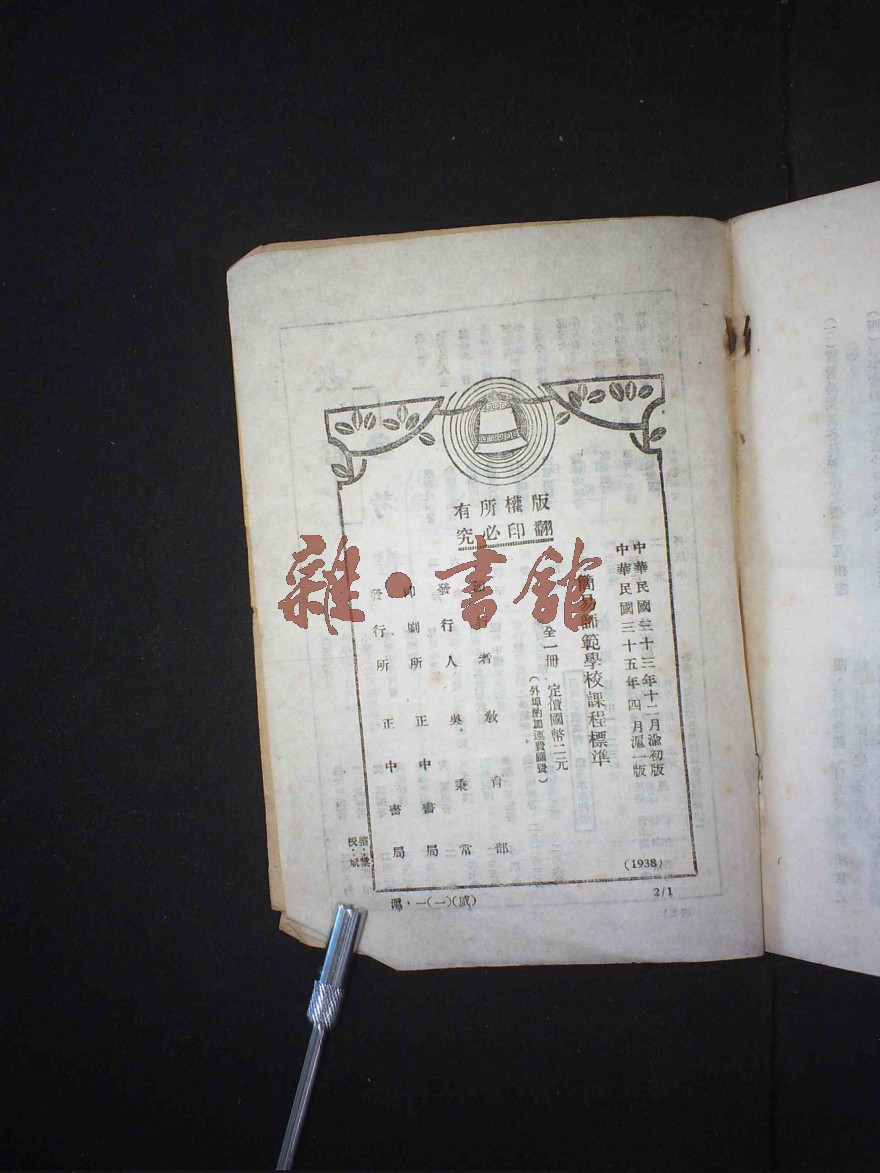 版權所有
翻印必究
中華民國三十三年十二月渝初版
中華民國三十五年四月滬一版
(1938)
簡易師範學校課程標準
全一冊 定價國幣二元
(外埠酌加運費匯費)
行者 教育部
發行人 吳秉常
印刷所 正中書局
發行所 正中書局
2/1
雜·書館